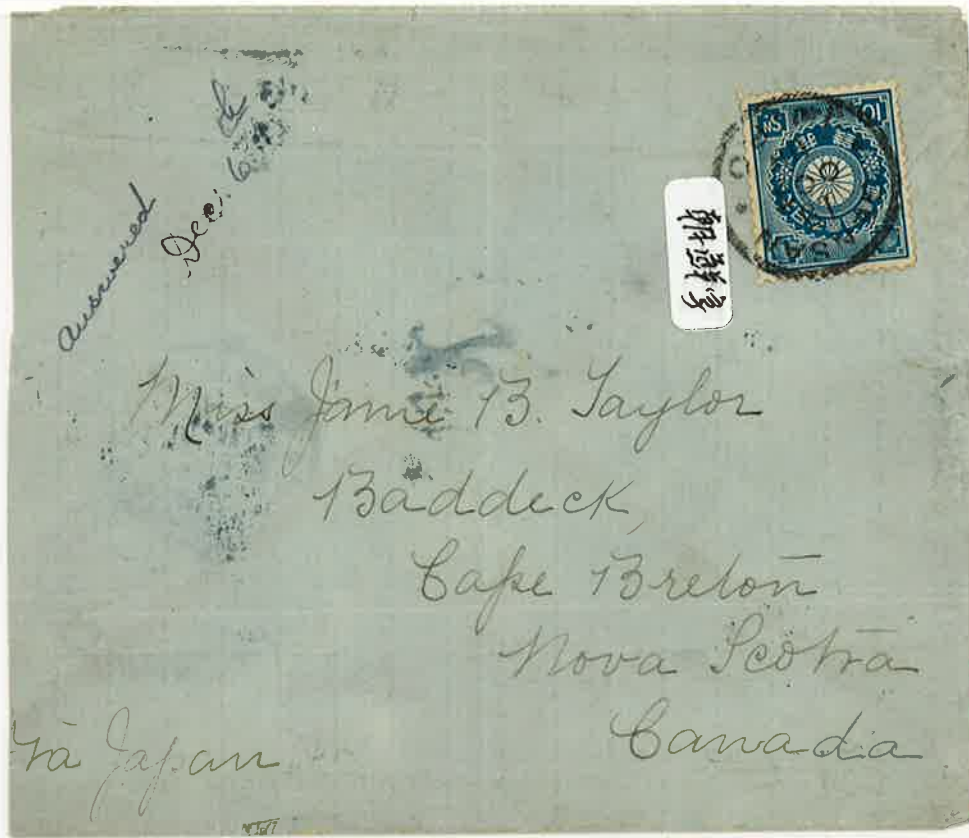 answered
Dec. 6
10 Sn
朝鮮字
Miss Jamie B. Taylor
Baddeck,
Cape Breton
Nova Scotia
Canada
Via Japan